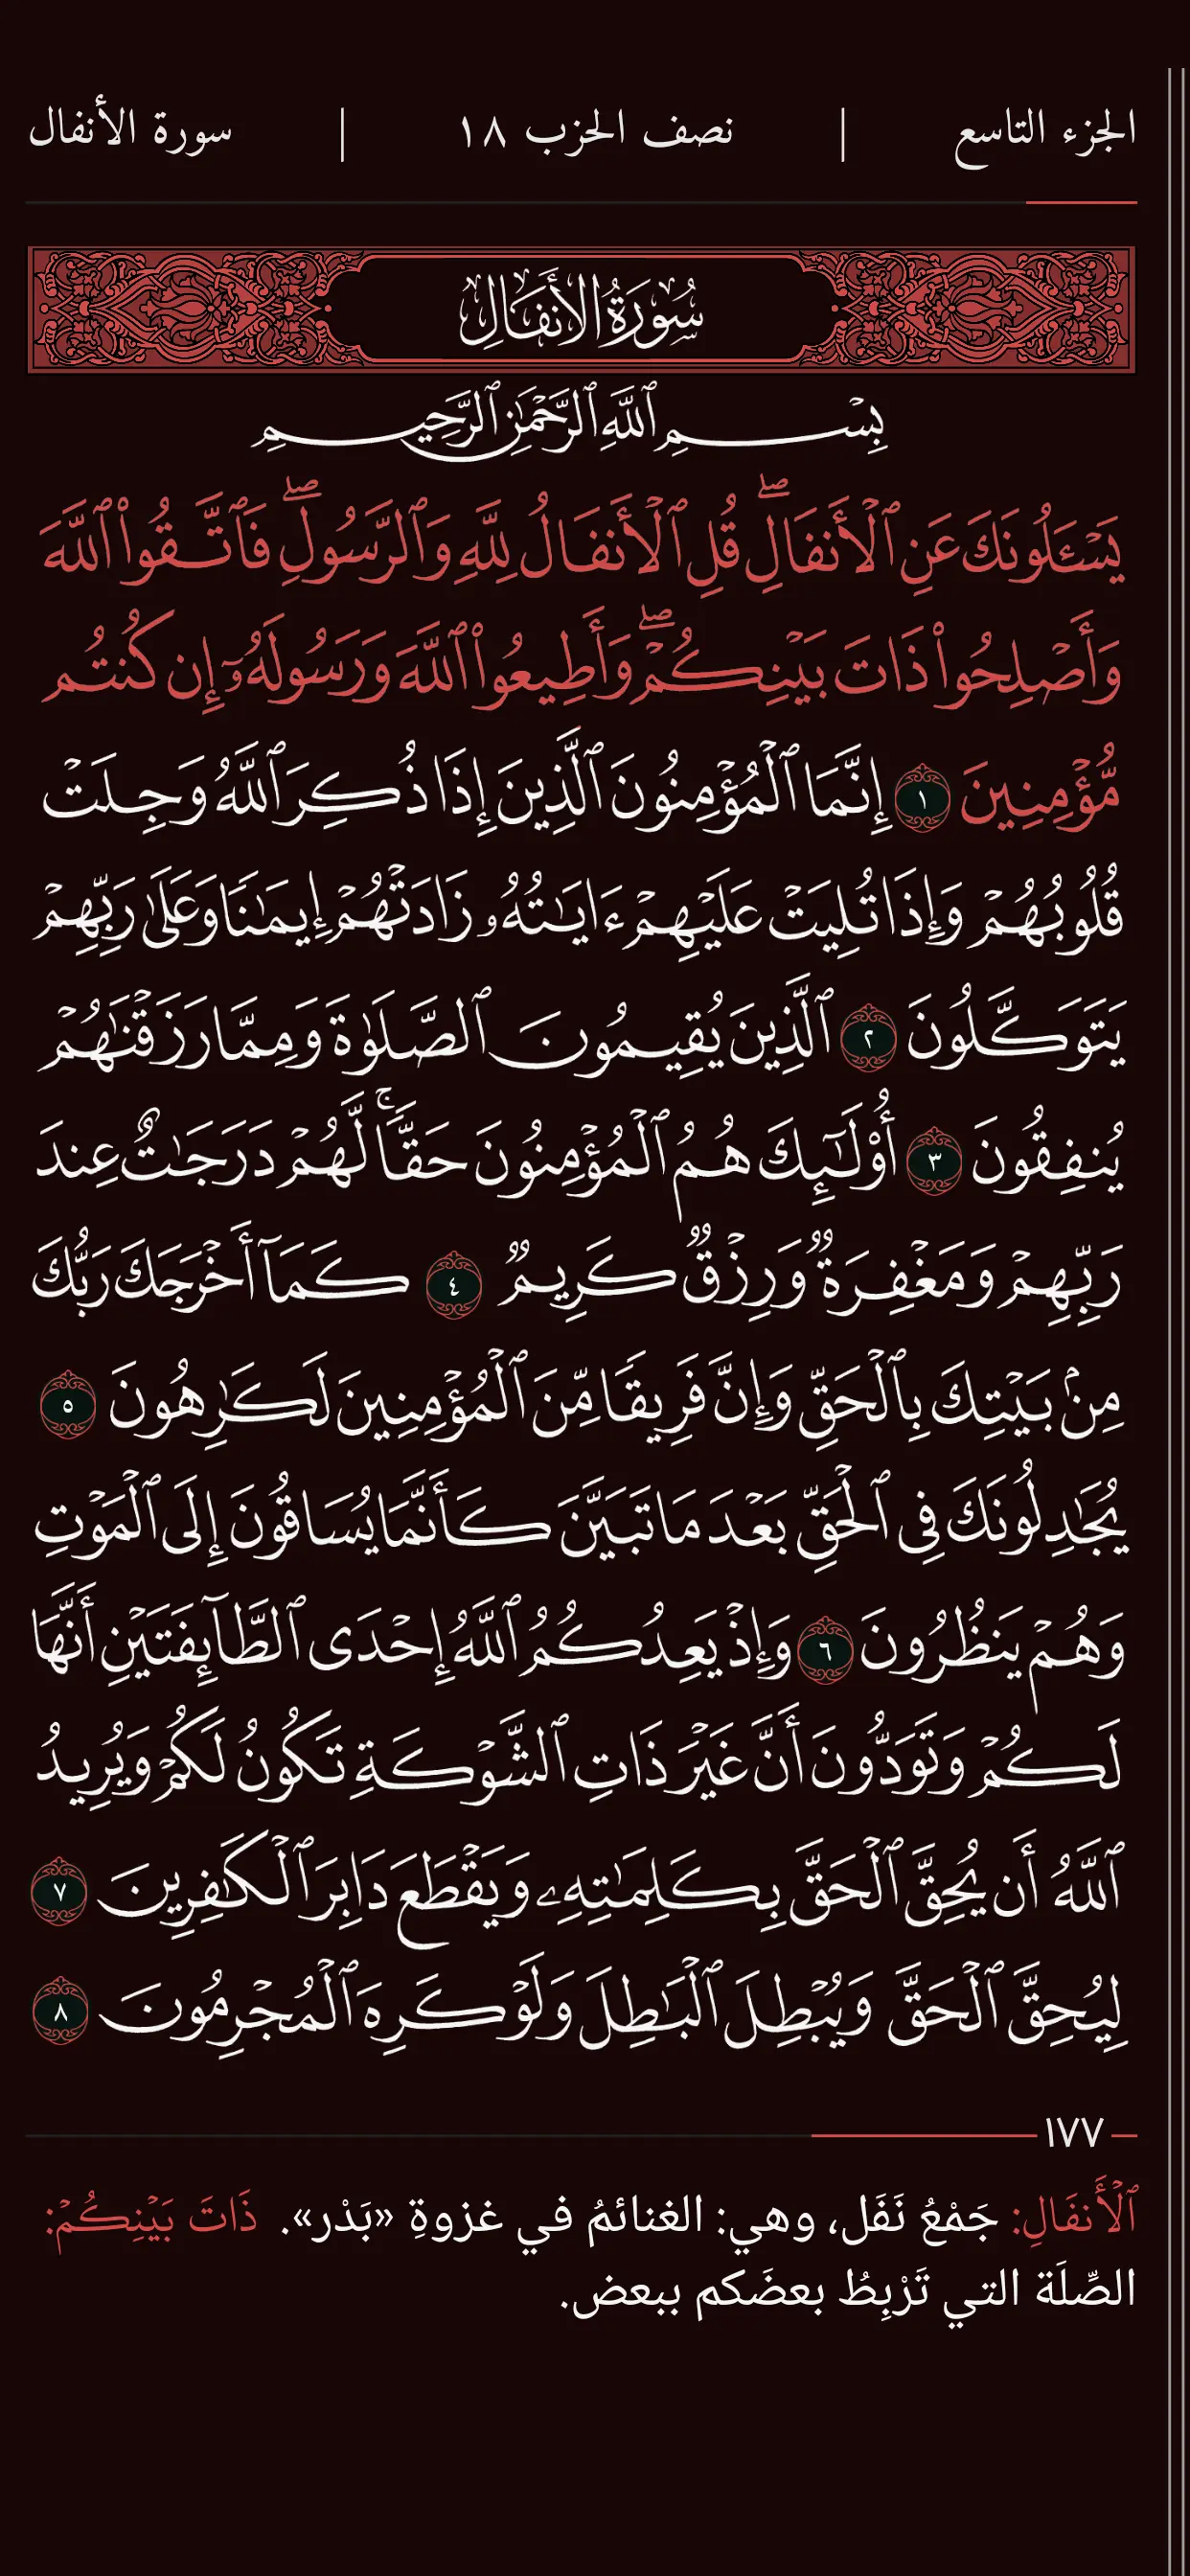 الجزء التاسع | نصف الحزب ١٨ | سورة الأنفال
سُورَةُ الأَنفَالِ
بِسْمِ ٱللَّهِ ٱلرَّحْمَٰنِ ٱلرَّحِيمِ
يَسْـَٔلُونَكَ عَنِ ٱلْأَنفَالِۖ قُلِ ٱلْأَنفَالُ لِلَّهِ وَٱلرَّسُولِۖ فَٱتَّقُوا۟ ٱللَّهَ
وَأَصْلِحُوا۟ ذَاتَ بَيْنِكُمْۖ وَأَطِيعُوا۟ ٱللَّهَ وَرَسُولَهُۥٓ إِن كُنتُم
مُّؤْمِنِينَ ١ إِنَّمَا ٱلْمُؤْمِنُونَ ٱلَّذِينَ إِذَا ذُكِرَ ٱللَّهُ وَجِلَتْ
قُلُوبُهُمْ وَإِذَا تُلِيَتْ عَلَيْهِمْ ءَايَٰتُهُۥ زَادَتْهُمْ إِيمَٰنًا وَعَلَىٰ رَبِّهِمْ
يَتَوَكَّلُونَ ٢ ٱلَّذِينَ يُقِيمُونَ ٱلصَّلَوٰةَ وَمِمَّا رَزَقْنَٰهُمْ
يُنفِقُونَ ٣ أُو۟لَٰٓئِكَ هُمُ ٱلْمُؤْمِنُونَ حَقًّاۚ لَّهُمْ دَرَجَٰتٌ عِندَ
رَبِّهِمْ وَمَغْفِرَةٌ وَرِزْقٌ كَرِيمٌ ٤ كَمَآ أَخْرَجَكَ رَبُّكَ
مِنۢ بَيْتِكَ بِٱلْحَقِّ وَإِنَّ فَرِيقًا مِّنَ ٱلْمُؤْمِنِينَ لَكَٰرِهُونَ ٥
يُجَٰدِلُونَكَ فِى ٱلْحَقِّ بَعْدَ مَا تَبَيَّنَ كَأَنَّمَا يُسَاقُونَ إِلَى ٱلْمَوْتِ
وَهُمْ يَنظُرُونَ ٦ وَإِذْ يَعِدُكُمُ ٱللَّهُ إِحْدَى ٱلطَّآئِفَتَيْنِ أَنَّهَا
لَكُمْ وَتَوَدُّونَ أَنَّ غَيْرَ ذَاتِ ٱلشَّوْكَةِ تَكُونُ لَكُمْ وَيُرِيدُ
ٱللَّهُ أَن يُحِقَّ ٱلْحَقَّ بِكَلِمَٰتِهِۦ وَيَقْطَعَ دَابِرَ ٱلْكَٰفِرِينَ ٧
لِيُحِقَّ ٱلْحَقَّ وَيُبْطِلَ ٱلْبَٰطِلَ وَلَوْ كَرِهَ ٱلْمُجْرِمُونَ ٨
١٧٧
ٱلْأَنفَالِ: جَمْعُ نَفَل، وهي: الغنائمُ في غزوةِ «بَدْر». ذَاتَ بَيْنِكُمْ:
الصِّلَة التي تَرْبِطُ بعضَكم ببعض.